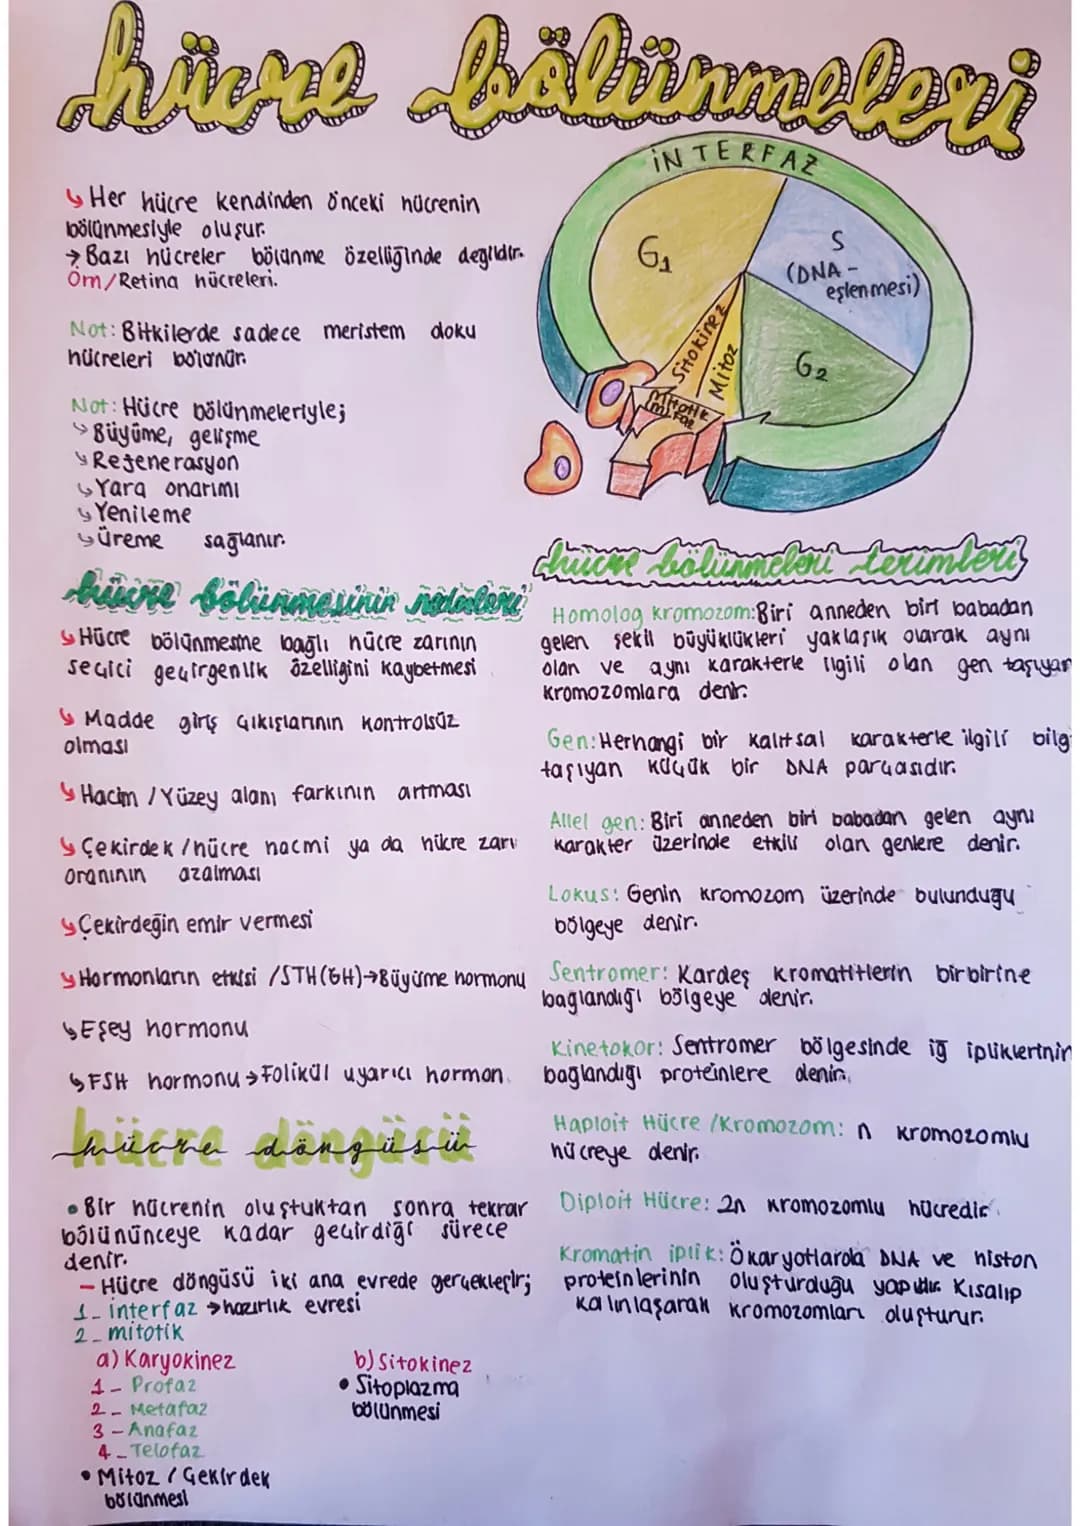 hücre bölünmeleri
↳ Her hücre kendinden önceki hücrenin
bölünmesiyle oluşur.
→ Bazı hücreler bölünme özelliğinde değildir.
Örn/Retina hücreleri.
Not: Bitkilerde sadece meristem doku
hücreleri bölünür.
Not: Hücre bölünmeleriyle;
↳ Büyüme, gelişme
↳ Rejenerasyon
↳ Yara onarımı
↳ Yenileme
↳ üreme sağlanır.
hücre bölünmesinin nedenleri
↳ Hücre bölünmesine bağlı hücre zarının
seçici geçirgenlik özelliğini kaybetmesi
↳ Madde giriş çıkışlarının kontrolsüz
olması
↳ Hacim / Yüzey alanı farkının artması
↳ Çekirdek / hücre hacmi ya da hücre zarı
oranının azalması
↳ Çekirdeğin emir vermesi
↳ Hormonların etkisi / STH (GH) → Büyüme hormonu
↳ Eşey hormonu
↳ FSH hormonu → Folikül uyarıcı hormon.
hücre döngüsü
hücre döngüsü
• Bir hücrenin oluştuktan sonra tekrar
bölününceye kadar geçirdiği sürece
denir.
- Hücre döngüsü iki ana evrede gerçekleşir;
1- interfaz → hazırlık evresi
2- mitotik
a) Karyokinez
1- Profaz
2- Metafaz
3- Anafaz
4- Telofaz
• Mitoz / Çekirdek
bölünmesi
b) Sitokinez
• Sitoplazma
bölünmesi
İNTERFAZ
G1
S
(DNA -
eşlenmesi)
G2
Sitokinez
Mitoz
Mitotik
faz
hücre bölünmeleri terimleri
Homolog kromozom: Biri anneden biri babadan
gelen şekil büyüklükleri yaklaşık olarak aynı
olan ve aynı karakterle ilgili olan gen taşıyan
kromozomlara denir.
Gen: Herhangi bir kalıtsal karakterle ilgili bilgi
taşıyan küçük bir DNA parçasıdır.
Allel gen: Biri anneden biri babadan gelen aynı
karakter üzerinde etkili olan genlere denir.
Lokus: Genin kromozom üzerinde bulunduğu
bölgeye denir.
Sentromer: Kardeş kromatitlerin birbirine
bağlandığı bölgeye denir.
Kinetokor: Sentromer bölgesinde iğ ipliklerinin
bağlandığı proteinlere denir.
Haploit Hücre / Kromozom: n kromozomlu
hücreye denir.
Diploit Hücre: 2n kromozomlu hücredir.
Kromatin iplik: Ökaryotlarda DNA ve histon
proteinlerinin oluşturduğu yapıdır. Kısalıp
kalınlaşarak kromozomları oluşturur.